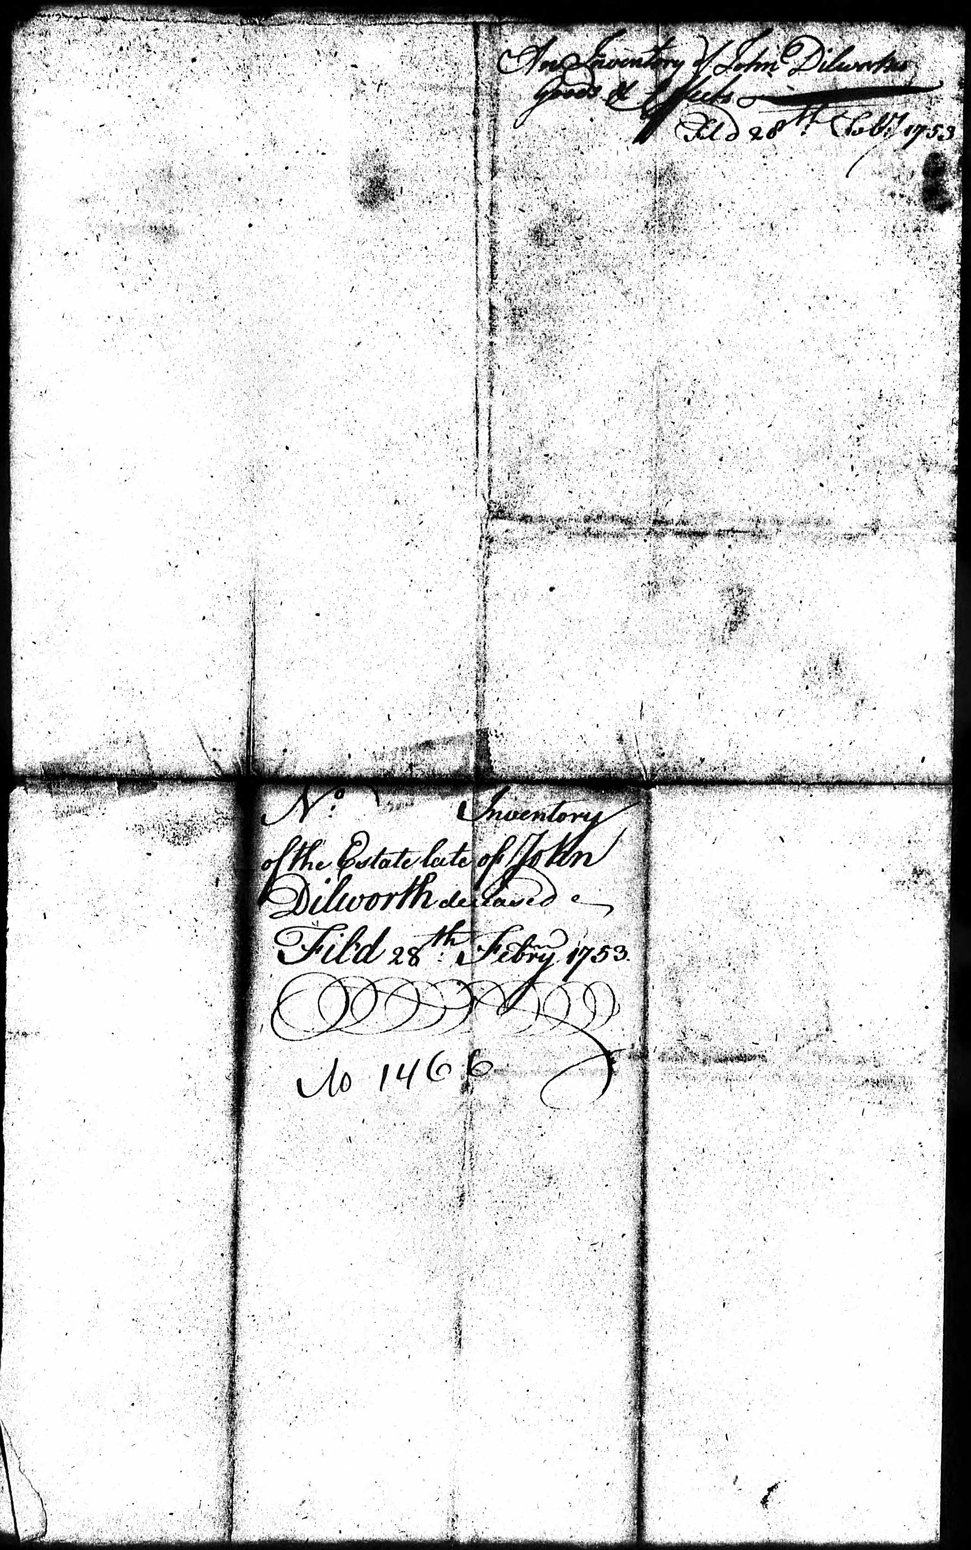 An Inventory of John Dilworths
Goods & Effects
Fild 28th Febry 1753
No. Inventory
of the Estate late of John
Dilworth deceased
Fil'd 28th: Febry 1753.
No 1466